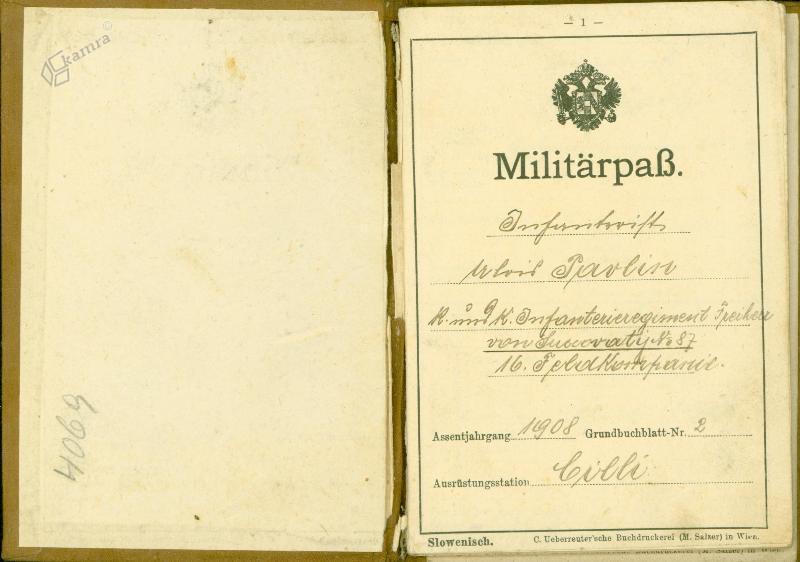 kamra
4069
— 1 —
Militärpaß.
Infanterist
Alois Pavlin
K. und K. Infanterieregiment Freiherr
von Succovaty No 87
16. Feldkompanie.
Assentjahrgang 1908 Grundbuchblatt-Nr. 2
Ausrüstungsstation Cilli
Slowenisch. C. Ueberreuter'sche Buchdruckerei (M. Salzer) in Wien.